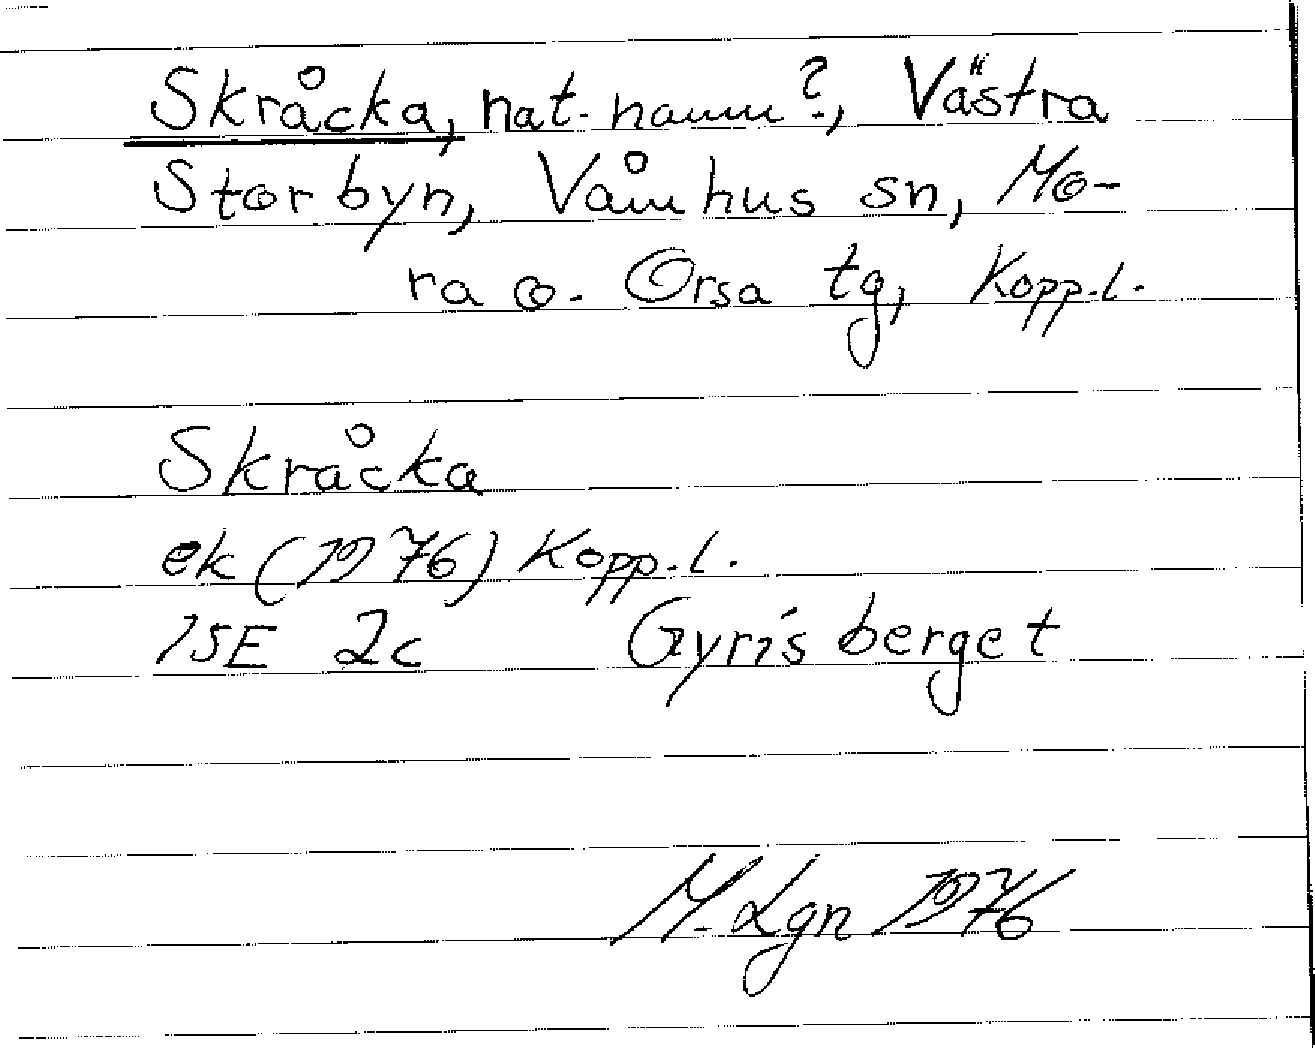 Skråcka, nat. namn?, Västra
Storbyn, Våmhus sn, Mo-
ra o. Orsa tg, Kopp.l.
Skråcka
ek (1976) Kopp.l.
15E 2c Gyrisberget
M. Lgn 1976